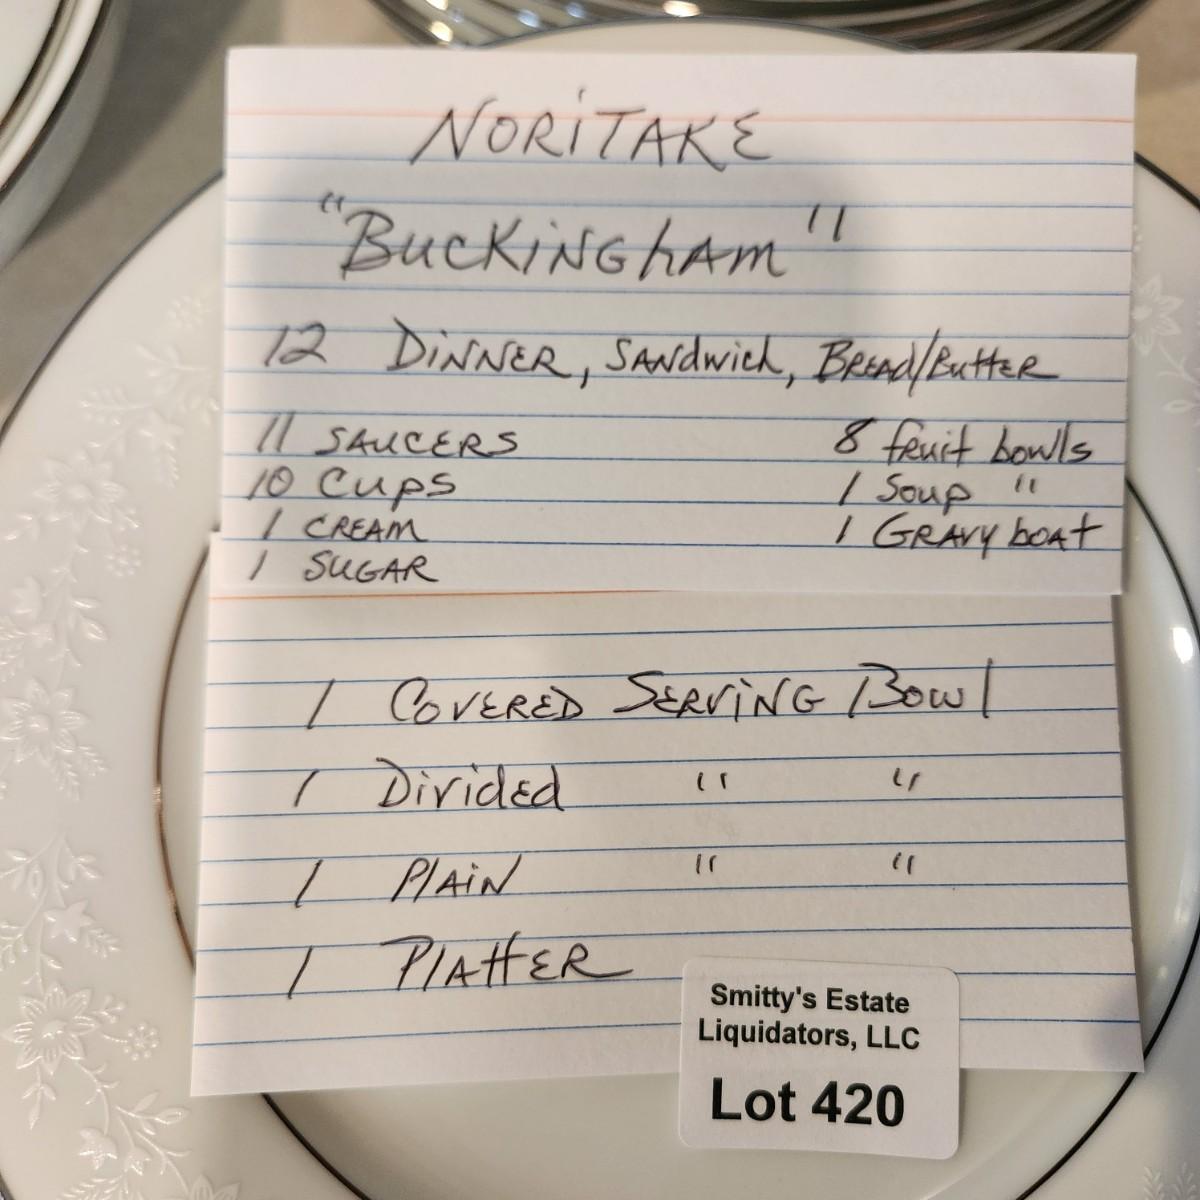 NORITAKE
"BUCKINGhAM"
12 DINNER, SANDwich, BREAD/ButtER
11 SAUCERS 8 fruit bowls
10 Cups 1 Soup "
1 CREAM 1 GRAVY boAt
1 SUGAR
1 COVERED SERVING Bowl
1 Divided " "
1 PlAIN " "
1 PlAttER
Smitty's Estate
Liquidators, LLC
Lot 420